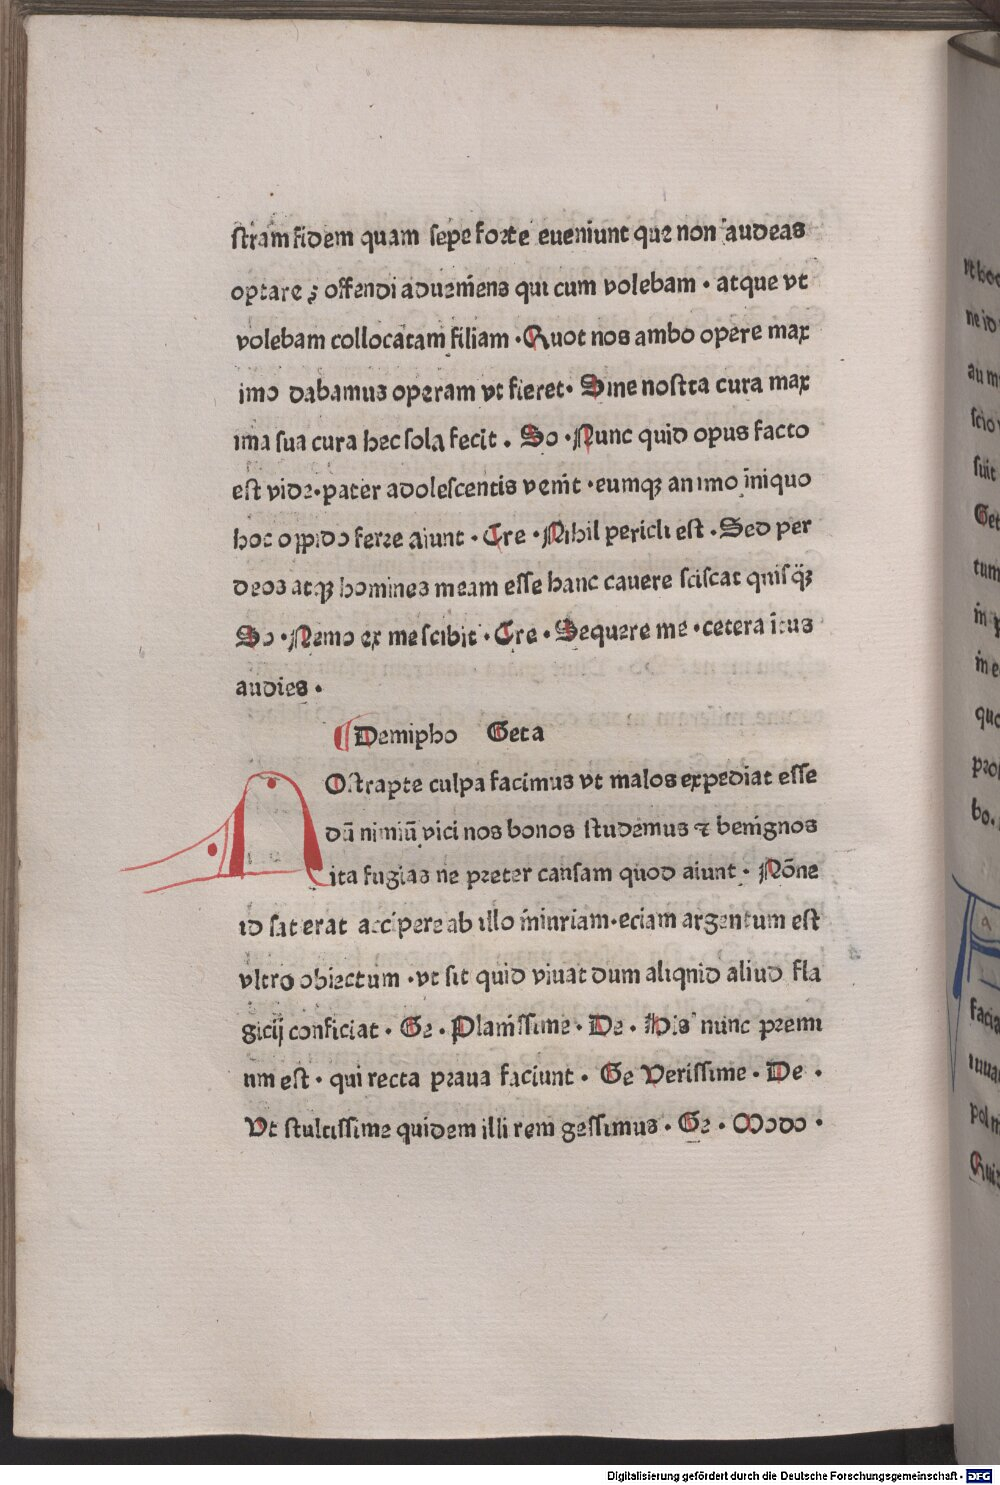 ſtram fidem quam ſepe forte eueniunt que non audeas
optare ꝫ offendi aduemens qui cum volebam · atque vt
volebam collocatam filiam · Quot nos ambo opere max
imo dabamus operam vt fieret · Sine noſtta cura max
ima ſua cura hec ſola fecit . So · Nunc quid opus facto
eſt vide · pater adoleſcentis venit · eumqꝫ animo iniquo
hoc oppido ferre aiunt · Cre · Nihil pericli eſt · Sed per
deos atqꝫ homines meam eſſe hanc cauere ſciſcat quiſqꝫ̄
So · Nemo ex me ſcibit · Cre · Sequere me · cetera itus
audies ·
Demipho Geta
NOſtrapte culpa facimus vt malos expediat eſſe
dū nimiū vici nos bonos ſtudemus ⁊ benignos
ita fugias ne preter canſam quod aiunt · Nōne
id ſat erat accipere ab illo iniuriam · eciam argentum eſt
vltro obiectum · vt ſit quid viuat dum aliqnid aliud fla
gicij conficiat · Ge · Planiſſime · De · His nunc premi
um eſt · qui recta praua faciunt · Ge Veriſſime · De ·
Vt ſtultiſſime quidem illi rem geſſimus · Ge · Modo ·
vt hoc
ne id
ſcio
ſuit
Get
tum
in e
quo
prof
bo.
facia
pol
Qui
Digitalisierung gefördert durch die Deutsche Forschungsgemeinschaft - DFG